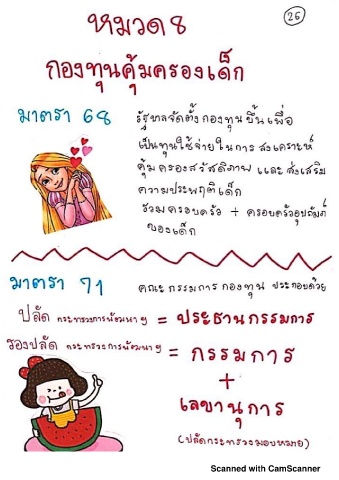 26
หมวด 8
กองทุนคุ้มครองเด็ก
มาตรา 68
รัฐบาลจัดตั้งกองทุนขึ้นเพื่อ
เป็นทุนใช้จ่ายในการ สงเคราะห์
คุ้มครองสวัสดิภาพ และ ส่งเสริม
ความประพฤติเด็ก
รวมครอบครัว + ครอบครัวอุปถัมภ์
ของเด็ก
มาตรา 71
คณะกรรมการกองทุน ประกอบด้วย
ปลัด กระทรวงการพัฒนาฯ = ประธานกรรมการ
รองปลัด กระทรวงการพัฒนาฯ = กรรมการ
+
เลขานุการ
(ปลัดกระทรวงมอบหมาย)
Scanned with CamScanner